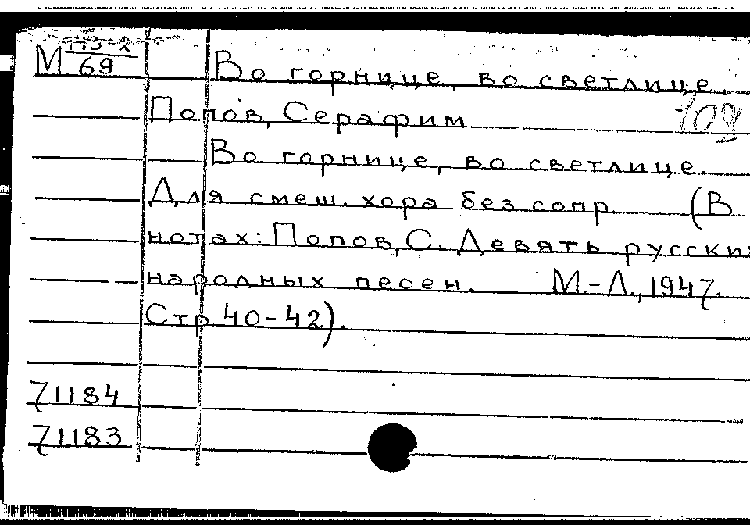 М 173-2/69 Во горнице, во светлице.
Попов, Серафим 102
Во горнице, во светлице.
Для смеш. хора без сопр. (В
нотах: Попов, С. Девять русских
народных песен. М.-Л., 1947.
Стр 40-42).
71184
71183